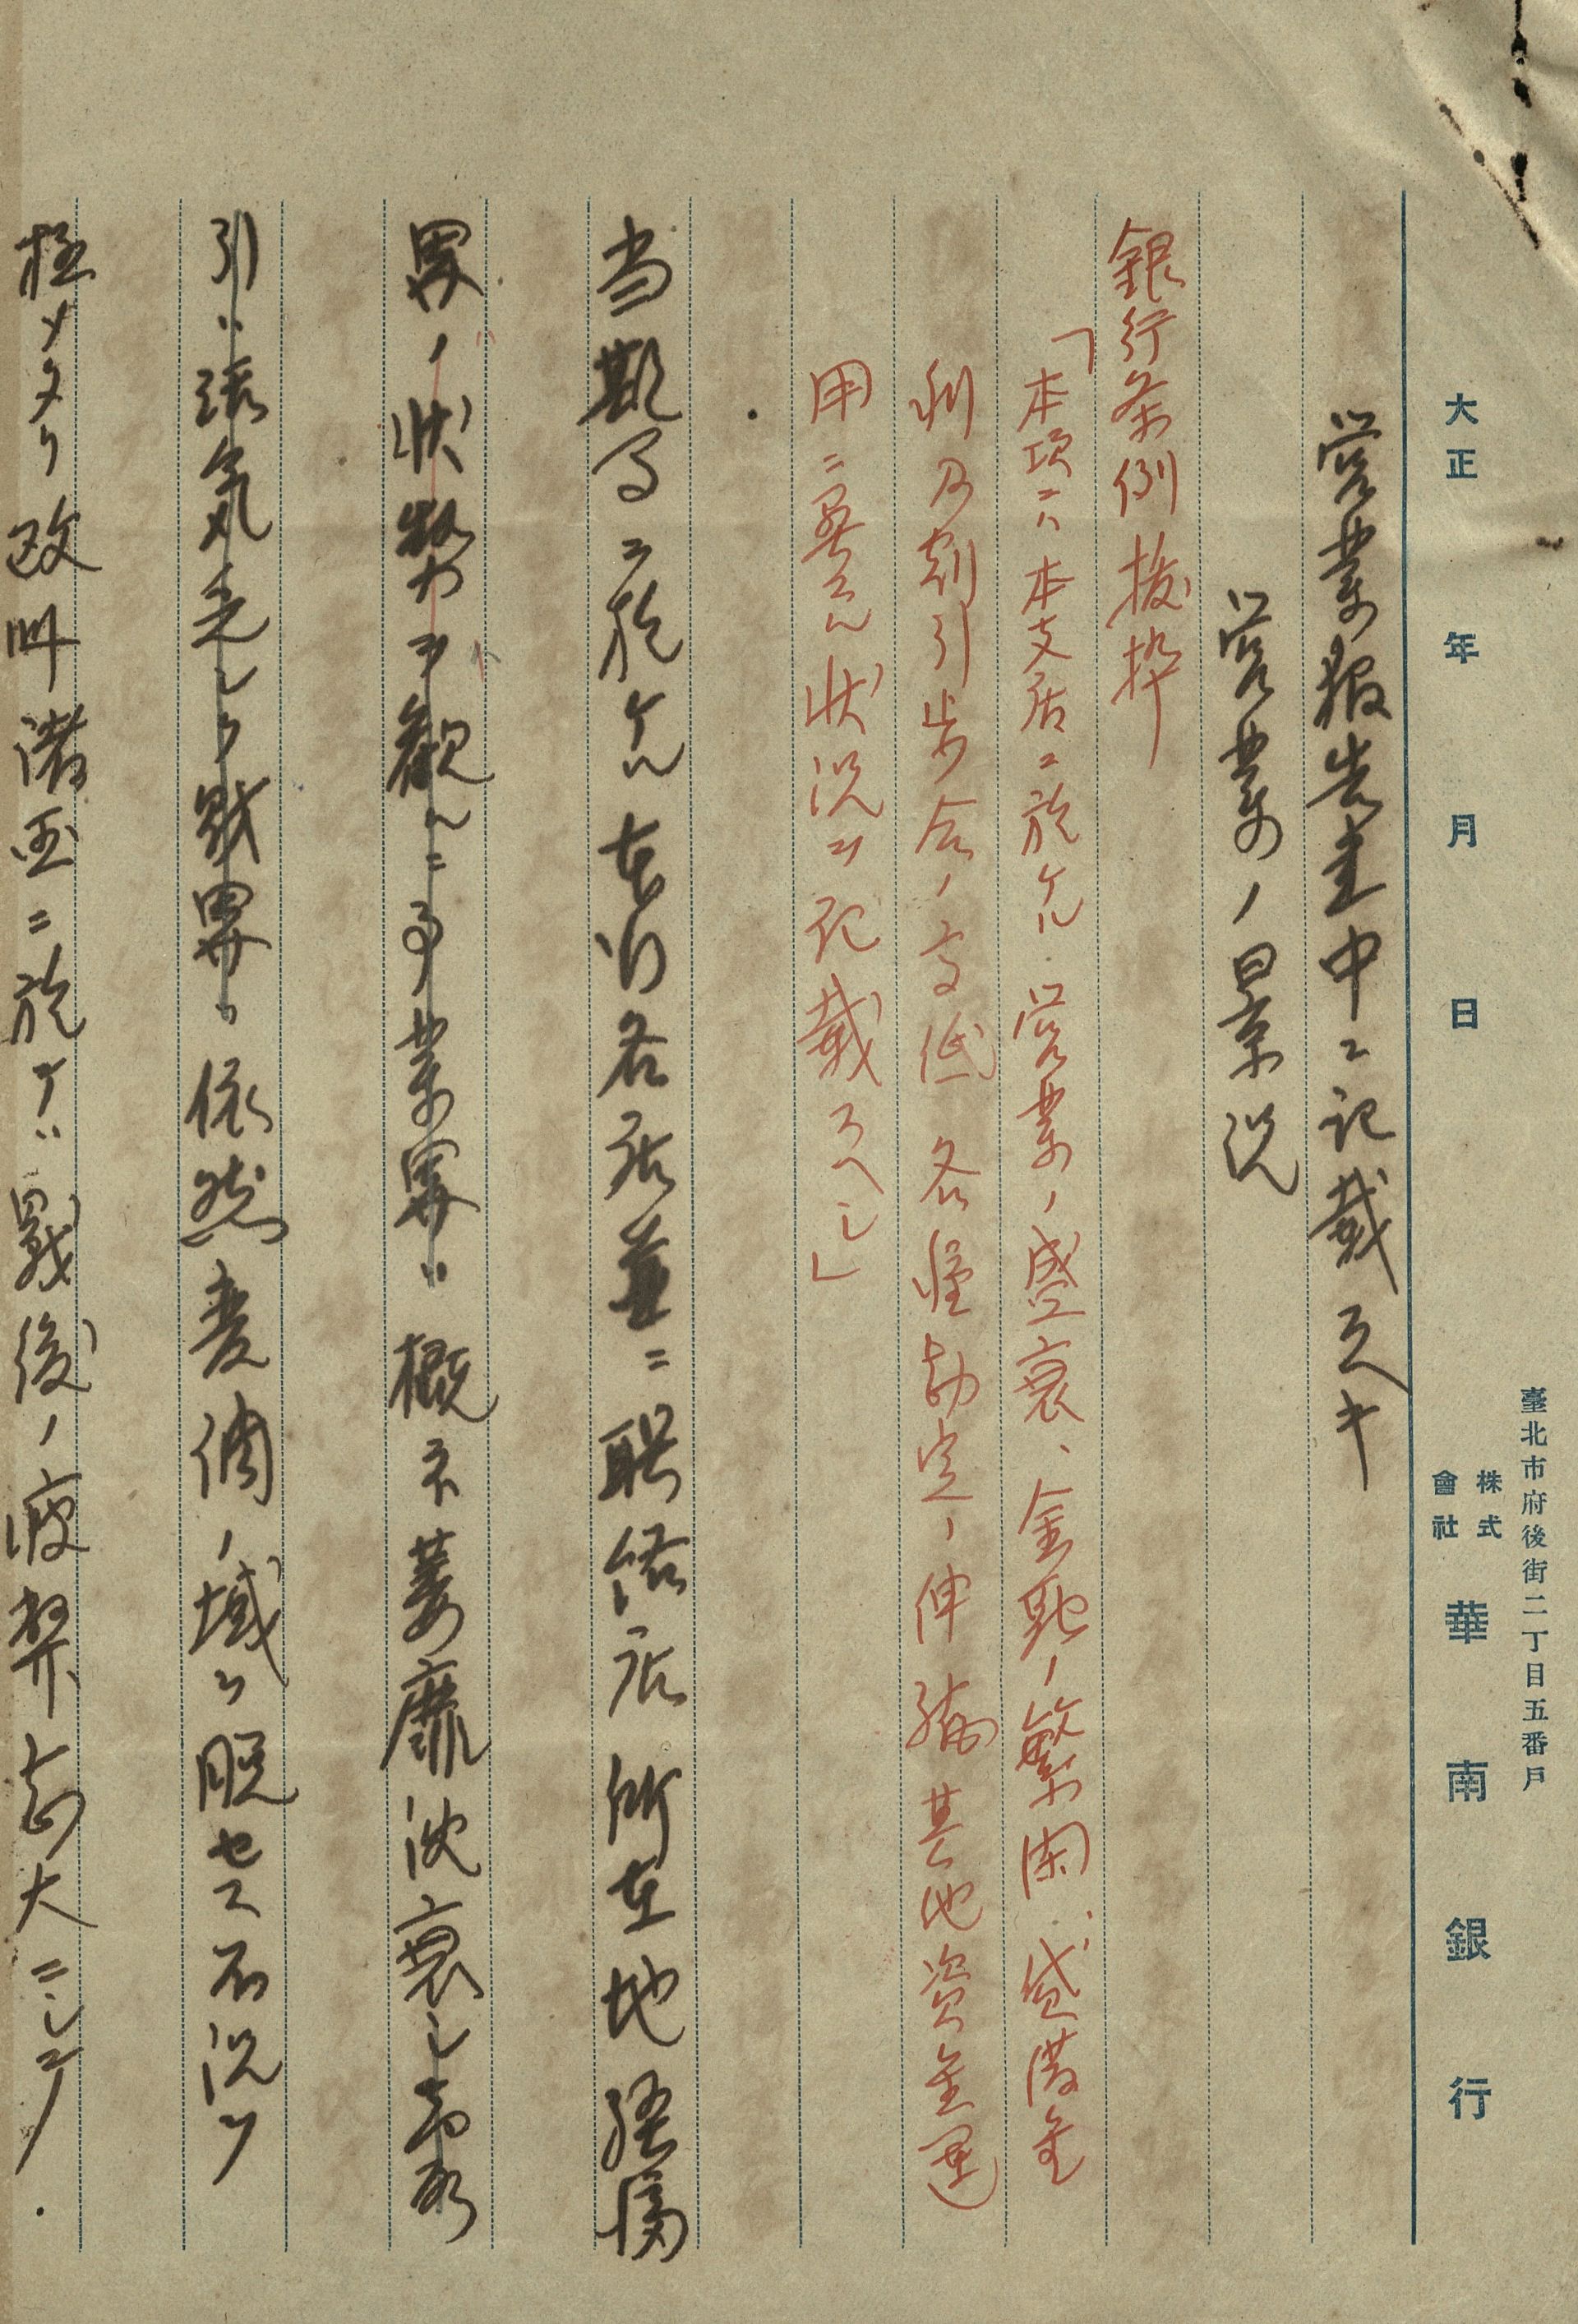 臺北市府後街二丁目五番戶
株式會社 華南銀行
大正 年 月 日
営業報告書中ニ記載スヘキ
営業ノ景況
銀行条例抜抄
「本項ニハ本支店ニ於ケル営業ノ盛衰、金融ノ繁閑、貸借金
利及割引歩合ノ高低各種勘定ノ伸縮其他資金運
用ニ関スル状況ヲ記載スヘシ」
当期間ニ於ケル本行各店並ニ聯絡店所在地経済
界ノ状勢ヲ観ルニ事業界ハ概ネ萎靡沈衰シ商取
引ハ活気乏シク財界ハ依然変調ノ域ヲ脱セス不況ヲ
極メタリ欧州諸国ニ於テハ戦後ノ疲弊甚大ニシテ